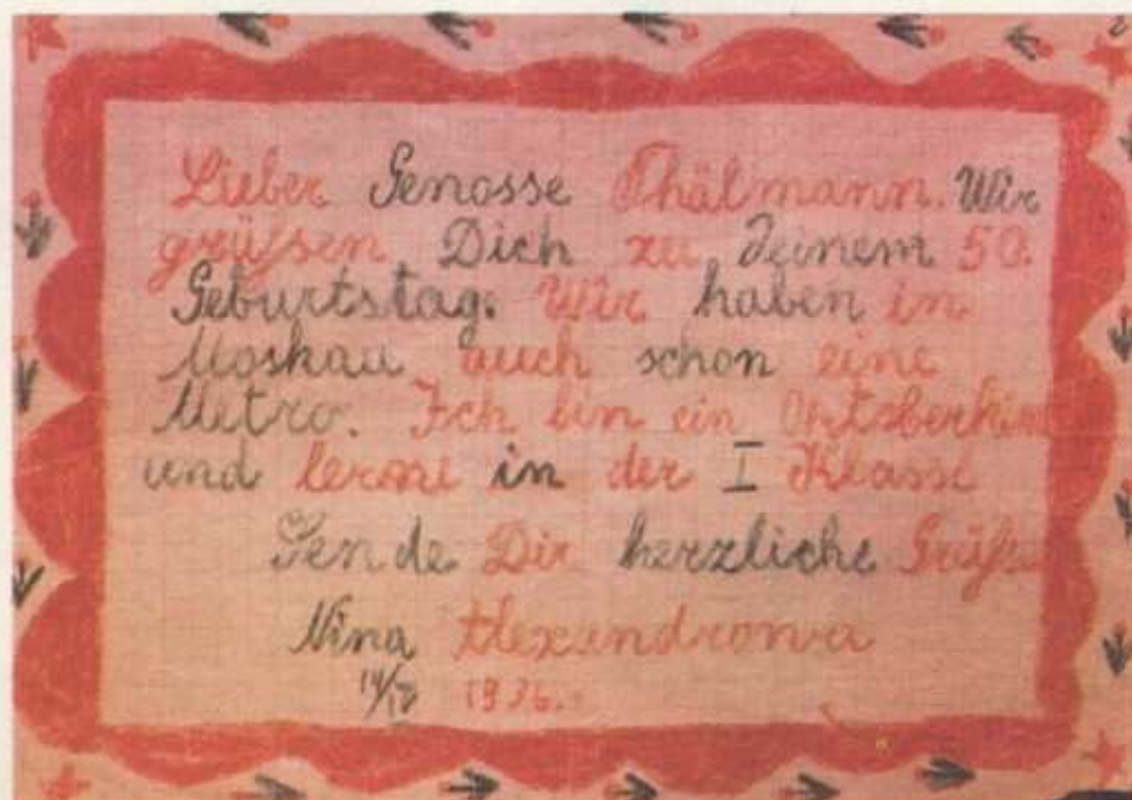 Lieber Genosse Thälmann. Wir
grüßen Dich zu Deinem 50.
Geburtstag. Wir haben in
Moskau auch schon eine
Metro. Ich bin ein
und lerne in der I Klasse
Sende Dir herzliche Grüße
Nina Alexandrowa
1936.